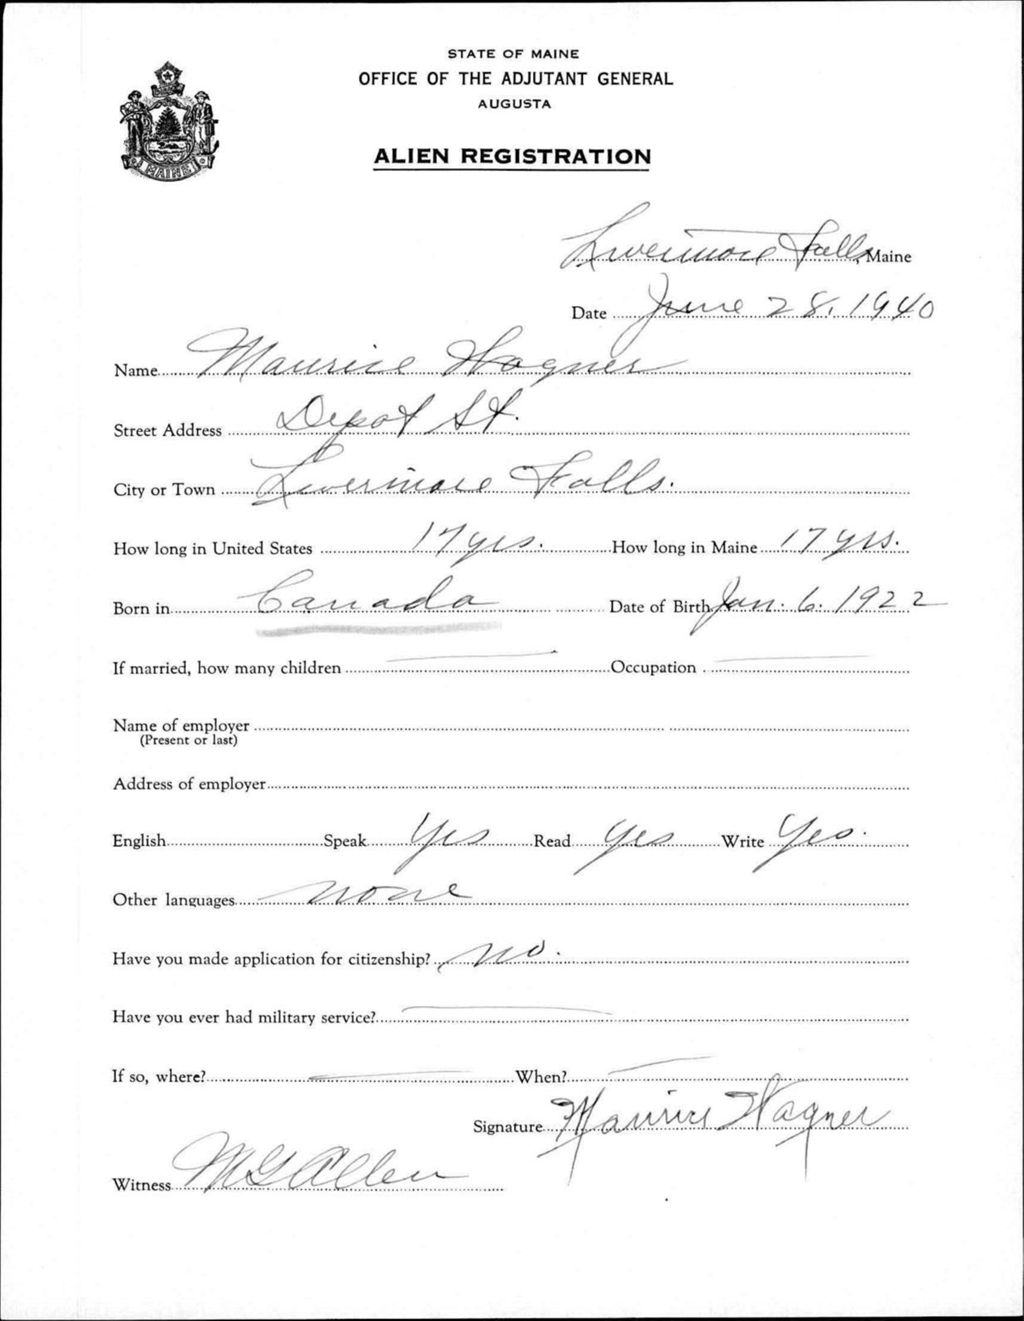 STATE OF MAINE
OFFICE OF THE ADJUTANT GENERAL
AUGUSTA
ALIEN REGISTRATION
MAINE
Livermore Falls, Maine
Date June 28, 1940
Name Maurice Wagner
Street Address Depot St.
City or Town Livermore Falls.
How long in United States 17 yrs. How long in Maine 17 yrs.
Born in Canada Date of Birth Jan. 6. 1922
If married, how many children Occupation
Name of employer
(Present or last)
Address of employer
English Speak Yes Read Yes Write Yes.
Other languages none
Have you made application for citizenship? no.
Have you ever had military service?
If so, where? When?
Signature Maurice Wagner
Witness M G Allen